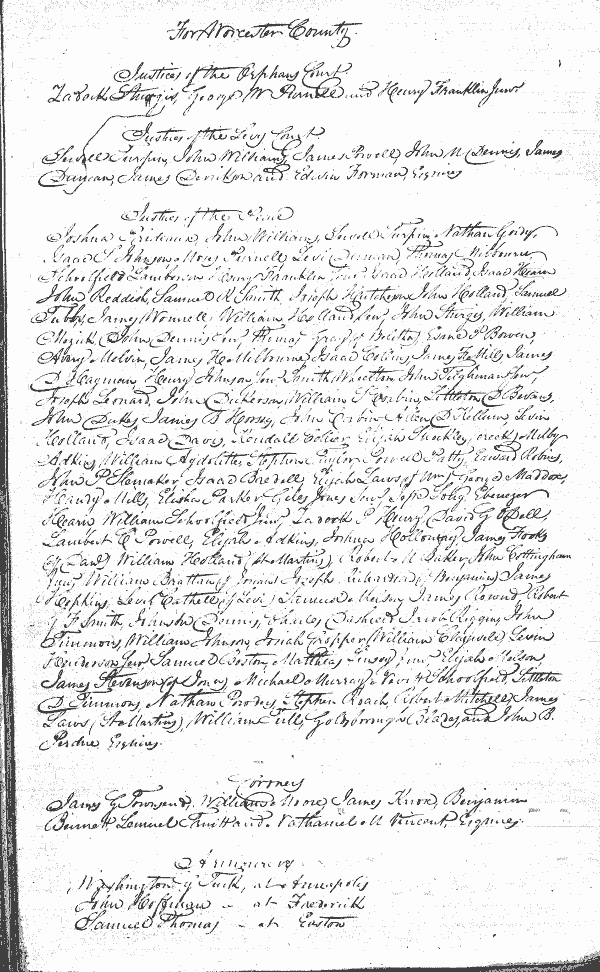 For Worcester County.
Justices of the Orphans Court.
Zadock Sturgis, George W Purnell and Henry Franklin Junr
Justices of the Levy Court
Sewell Turpin, John Williams, James Powell, John M Dennis, James
Duncan, James Derrikson and Edwin Forman, Esquires
Justices of the Peace
Joshua Prideaux, John Williams, Sewell Turpin, Nathan Gordy,
Isaac P Johnson, Moses Purnell, Levi Duncan, Thomas Milbourne,
Schoolfield Lamberson, Henry Franklin Junr Isaac Holland, Isaac Hearn
John Reddish, Samuel R Smith, Joseph Hutcheson, John Holland, Samuel
Tubbs, James Wonnell, William Holland Senr John Sturges, William
John Dennis Senr Thomas Gray of Bowen,
Avery Melvin, James H Milbourne, Isaac Collins, James Mills, James
D Hayman, Henry Johnson Smith Whealton, John Tilghman Senr,
Joseph Leonard, John Dickerson, William E Corbin, Littleton D Bevans,
John Dukes, James B Horsey, John Corbin, Allen D Kellum, Levin
Holland, Isaac Davis, Kendall Collier, Elijah creek, Milby
Adkins, William Aydolotte, Stephen Taylor, Powell Patty, Edward Robins,
John P Slemaker, Isaac Bredell, Elijah Laws (of Wm) George Maddox,
Handy Mills, Elisha Parker, Giles Jones Senr Ebenezer
Hearn, William Schoolfield Junr, Zadock P Henry, David G Odell,
Lambert C Powell, Elijah Adkins, Joshua Holloway, James Hooks
William Holland (St Martins), Robert M Baker, John Cottingham
Junr William Brattan (of Josiah) Joseph Richardson (of Benjamin) James
Hopkins, Levi Cathell (of Levi) Samuel James Rowend, Robert
J H Smith, Johnson Dennis, Charles Dashield, Jacob Riggin, John
Timmons, William Johnson, Josiah Cropper, William Claywell, Levin
Henderson Senr Samuel Boston, Matthias Linsey Junr Elijah Nelson
James Stevenson (of Jones) Michael Murray, Schoolfield, Littleton
D Timmons, Nathan Stephen Roach, Robert Mitchell, James
Laws (St Martins), William Tull, Goldsborough Beades, and John B.
Perdue Esquires.
Coroners
James G Townsend, William Moore, James Knox, Benjamin
Bennett, Lemuel Truitt and Nathaniel M Vincent, Esquires.
Armourers
Washington G Tuck, at Annapolis
John Hoffman - at Frederick
Samuel Thomas - at Easton